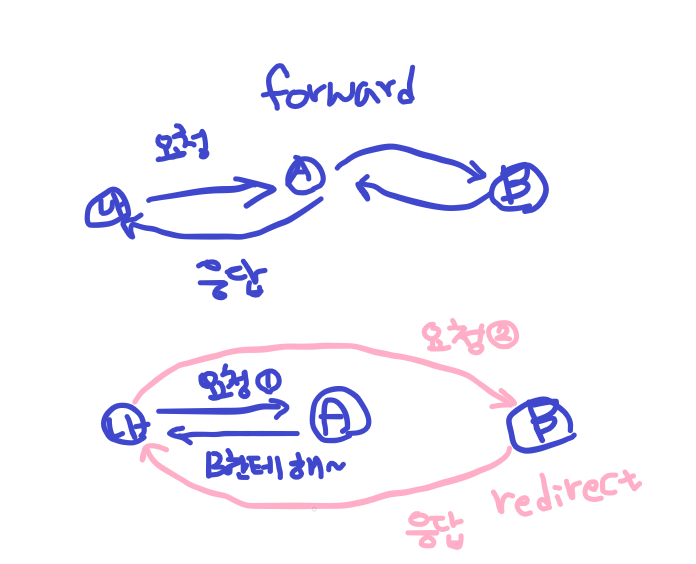 forward
요청
나
A
B
응답
요청②
요청①
나
A
B
B한테 해~
redirect
응답